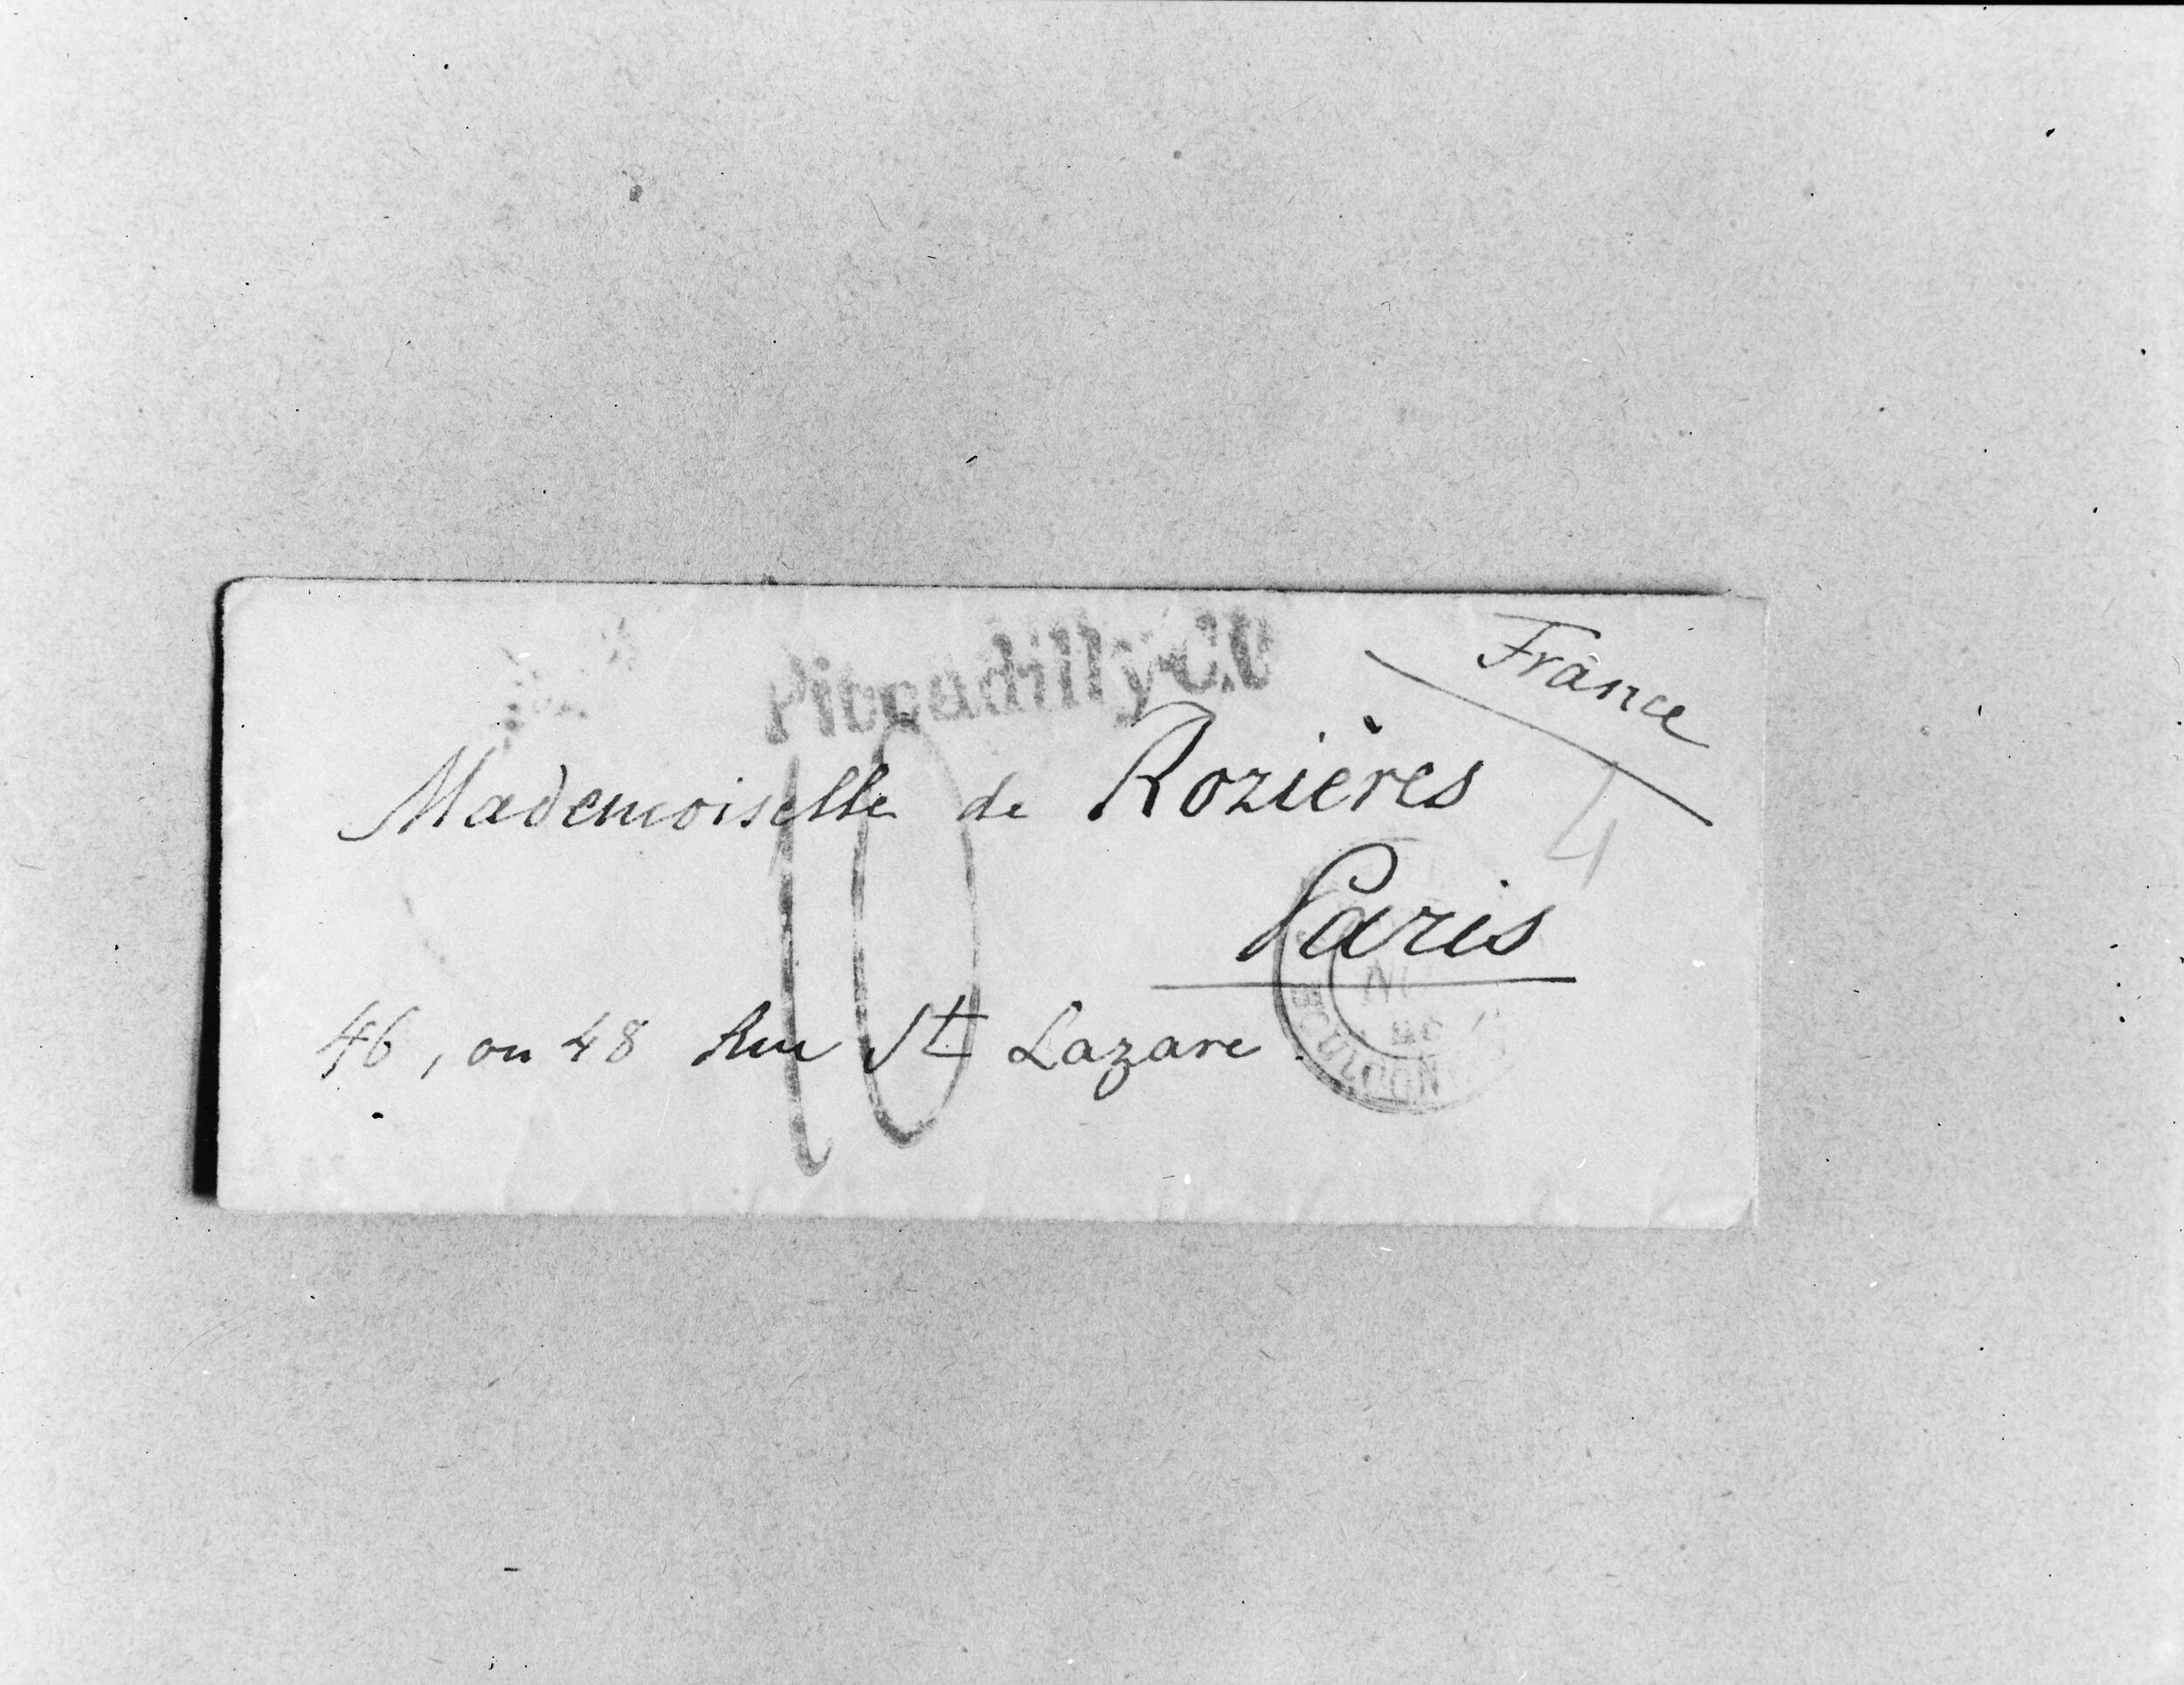 Piccadilly C.O
France
Mademoiselle de Rozières
4
Paris
10
46, ou 48 Rue St Lazare
BOULOGNE